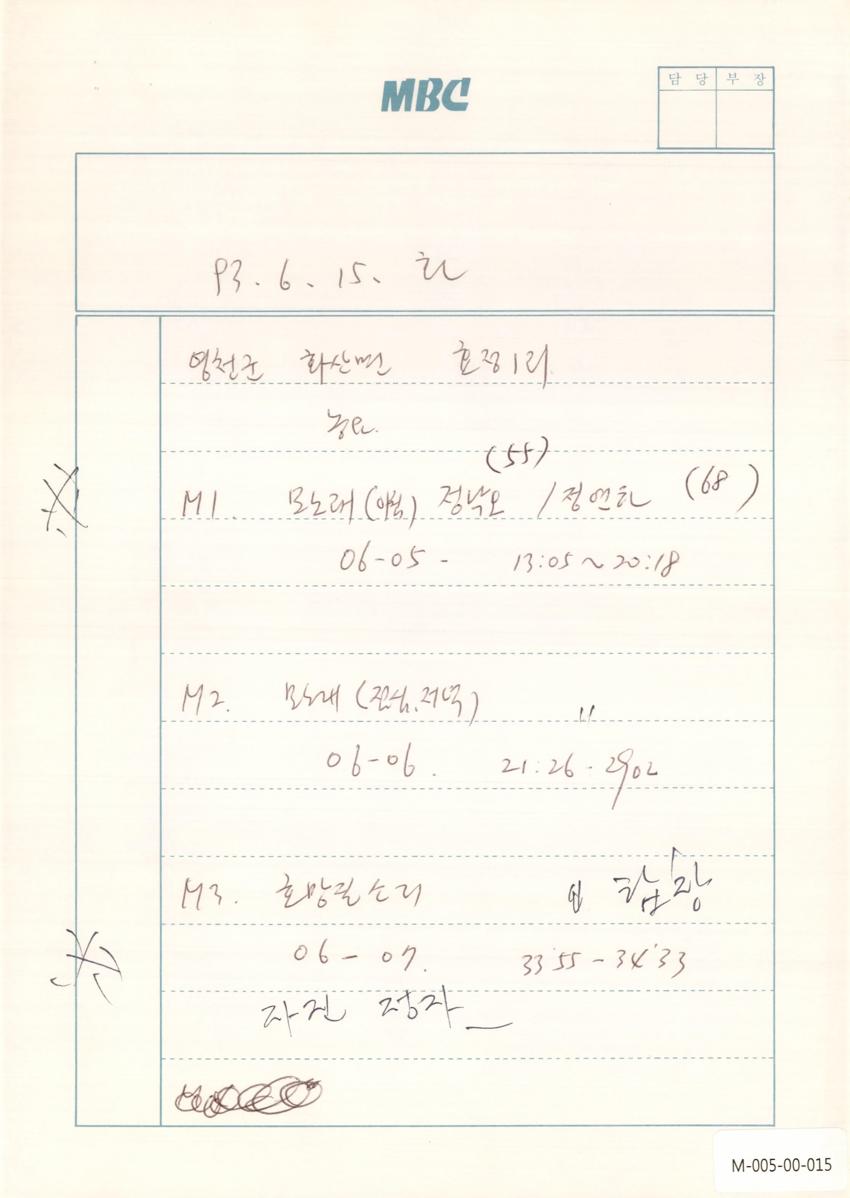 MBC
담 당 부 장
93. 6. 15. 화
영천군 화산면 효정1리
농요.
(55)
M1. 모노래(아침) 정낙오 / 정연화 (68)
06-05 - 13:05~20:18
M2. 모노래(점심, 저녁) "
06-06. 21:26 - 2902
M3. 호망질소리
06-07. 33'55-34'33
M-005-00-015